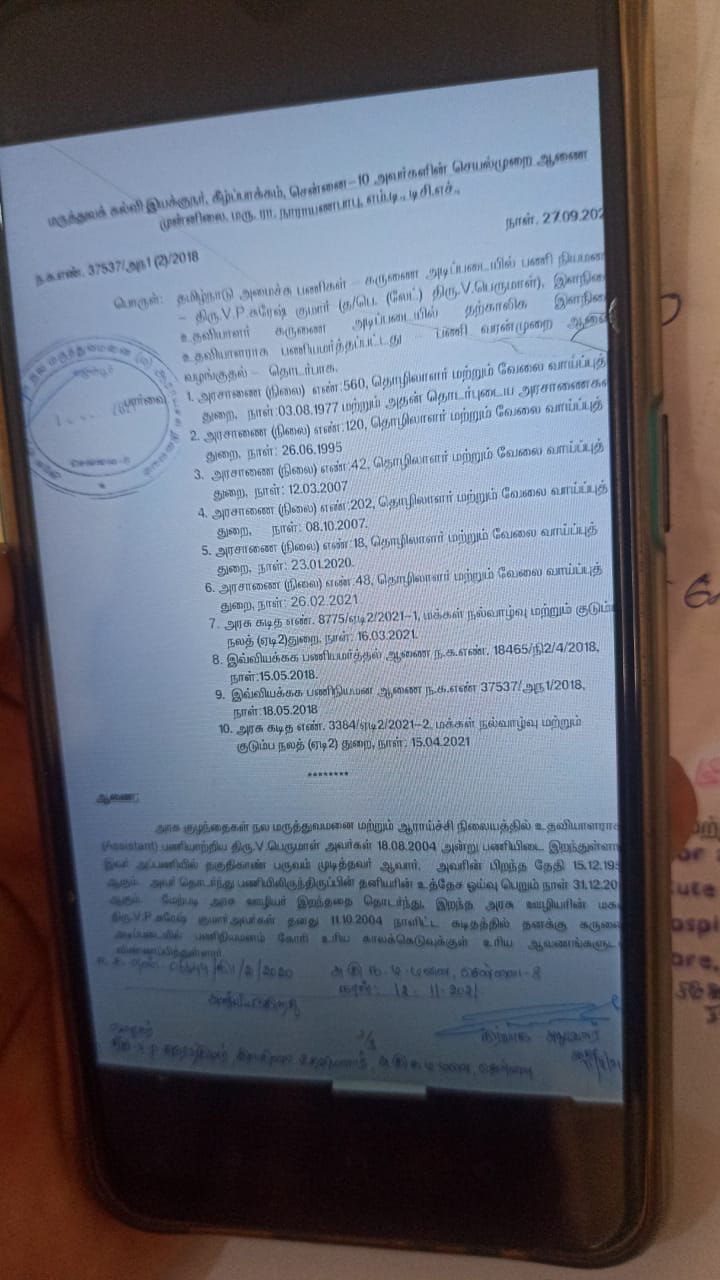 மருத்துவக் கல்வி இயக்குநர், கீழ்ப்பாக்கம், சென்னை-10 அவர்களின் செயல்முறை ஆணை
முன்னிலை, மரு. ரா. நாராயணபாபு, எம்.டி., டி.சி.எச்.,
நாள். 27.09.202
ந.க.எண். 37537/அந1 (2)/2018
பொருள்: தமிழ்நாடு அமைச்சு பணிகள் – கருணை அடிப்படையில் பணி நியமன
– திரு.V.P.சுரேஷ் குமார் (த/பெ. (லேட்) திரு.V.பெருமாள்), இளநிலை
உதவியாளர் கருணை அடிப்படையில் தற்காலிக இளநிலை
உதவியாளராக பணியமர்த்தப்பட்டது – பணி வரன்முறை ஆணை
வழங்குதல் – தொடர்பாக.
பார்வை
1. அரசாணை (நிலை) எண்:560, தொழிலாளர் மற்றும் வேலை வாய்ப்புத்
துறை, நாள்:03.08.1977 மற்றும் அதன் தொடர்புடைய அரசாணைகள்
2. அரசாணை (நிலை) எண்:120, தொழிலாளர் மற்றும் வேலை வாய்ப்புத்
துறை, நாள்: 26.06.1995
3. அரசாணை (நிலை) எண்:42, தொழிலாளர் மற்றும் வேலை வாய்ப்புத்
துறை, நாள்: 12.03.2007
4. அரசாணை (நிலை) எண்:202, தொழிலாளர் மற்றும் வேலை வாய்ப்புத்
துறை, நாள்: 08.10.2007.
5. அரசாணை (நிலை) எண்:18, தொழிலாளர் மற்றும் வேலை வாய்ப்புத்
துறை, நாள்: 23.01.2020.
6. அரசாணை (நிலை) எண்:48, தொழிலாளர் மற்றும் வேலை வாய்ப்புத்
துறை, நாள்: 26.02.2021
7. அரசு கடித எண். 8775/ஏடி2/2021-1, மக்கள் நல்வாழ்வு மற்றும் குடும்ப
நலத் (ஏடி2)துறை, நாள்: 16.03.2021.
8. இவ்வியக்கக பணியமர்த்தல் ஆணை ந.க.எண். 18465/நி2/4/2018,
நாள்:15.05.2018.
9. இவ்வியக்கக பணிநியமன ஆணை ந.க.எண் 37537/அந1/2018,
நாள்:18.05.2018
10. அரசு கடித எண். 3364/ஏடி2/2021-2, மக்கள் நல்வாழ்வு மற்றும்
குடும்ப நலத் (ஏடி2) துறை, நாள்: 15.04.2021
********
ஆணை:
அரசு குழந்தைகள் நல மருத்துவமனை மற்றும் ஆராய்ச்சி நிலையத்தில் உதவியாளராக
(Assistant) பணியாற்றிய திரு.V.பெருமாள் அவர்கள் 18.08.2004 அன்று பணியிடை இறந்துள்ளா
இவர் அப்பணியில் தகுதிகாண் பருவம் முடித்தவர் ஆவார். அவரின் பிறந்த தேதி 15.12.195
ஆகும். அவர் தொடர்ந்து பணியிலிருந்திருப்பின் தனியரின் உத்தேச ஓய்வு பெறும் நாள் 31.12.20
ஆகும். மேற்படி அரசு ஊழியர் இறந்ததை தொடர்ந்து, இறந்த அரசு ஊழியரின் மக
திரு.V.P.சுரேஷ் குமார்அவர்கள் தனது 11.10.2004 நாளிட்ட கடிதத்தில் தனக்கு கருணை
அடிப்படையில் பணிநியமனம் கோரி உரிய காலக்கெடுவுக்குள் உரிய ஆவணங்களுட
விண்ணப்பித்துள்ளார்
/2/2020
சென்னை-8
நாள்: 12.11.2021